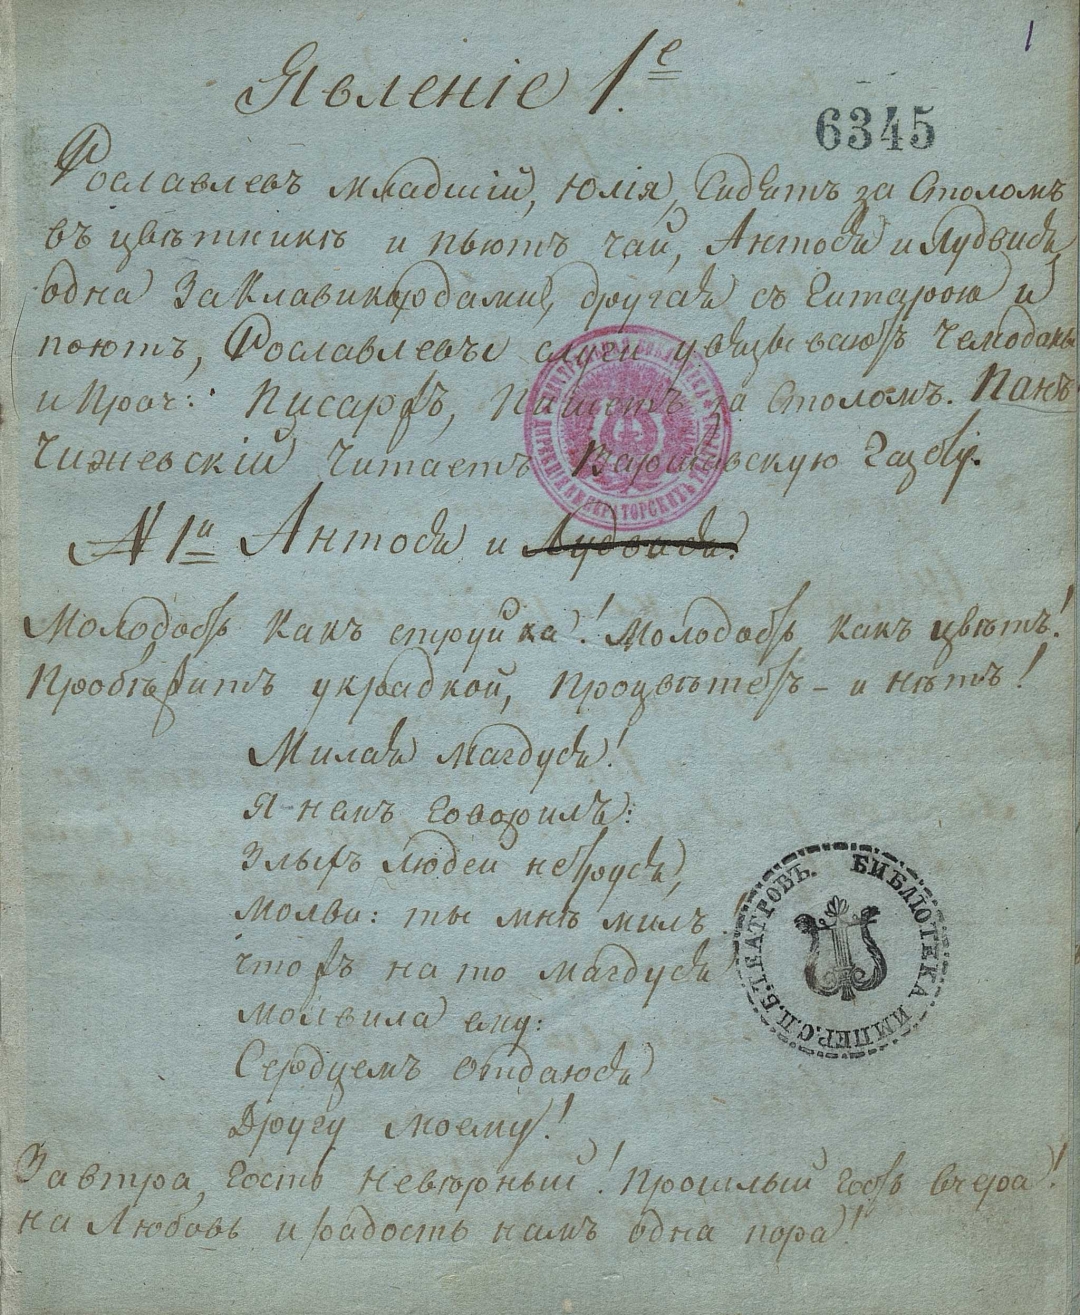 1
Явленіе 1.е
6345
Рославлевъ младшій, Юлія, Сидятъ за Столомъ
въ цвѣтникѣ и пьютъ чай, Антося и Лудвися
одна За Клавикордами, другая съ Гитарою и
поютъ, Рославлевы слуги увязываютъ Чемоданы
и Проч: Писарь, Пишетъ за Столомъ. Панъ
Чижевскій Читаетъ Варшавскую Газету.
N 1й Антося и Лудвися.
Молодость какъ струйка! Молодость какъ цвѣтъ!
Пробѣжитъ украдкой, Процвѣтетъ – и нѣтъ!
Милая Магдуся!
Я ней говорилъ:
Злыхъ людей не труся,
Молви: ты мнѣ милъ
Чтожъ на то Магдуся
Молвила ему:
Сердцемъ отдаюся
Другу моему!
Завтра, Гость невѣрный! Прошлый Годъ вчера!
на Любовь и радость намъ одна пора!
БИБЛІОТЕКА ИМПЕР. С.П.Б. ТЕАТРОВЪ.